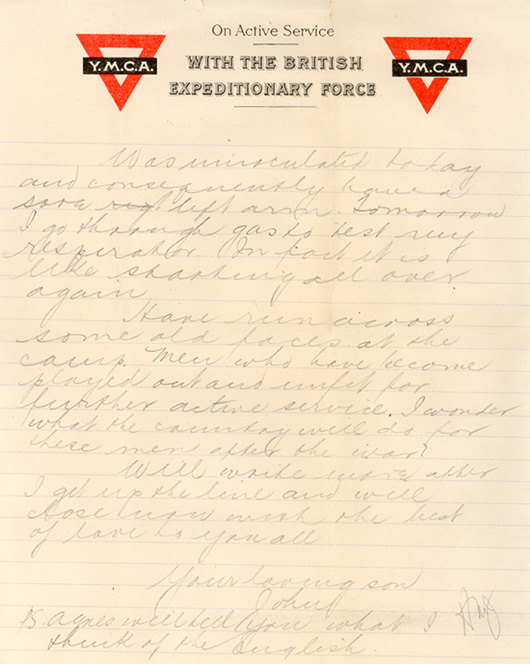 On Active Service
Y.M.C.A.
WITH THE BRITISH
EXPEDITIONARY FORCE
Y.M.C.A.
Was innoculated to day
and consequently have a
sore left arm. Tomorrow
I go through gas to test my
respirator. In fact it is
like starting all over
again.
Have run across
some old faces at the
camp. Men who have become
played out and unfit for
further active service. I wonder
what the country will do for
these men after the war?
Will write more after
I get up the line and will
close now with the best
of love to you all
Your loving son
John
P.S. Agnes will tell you what I
think of the English.